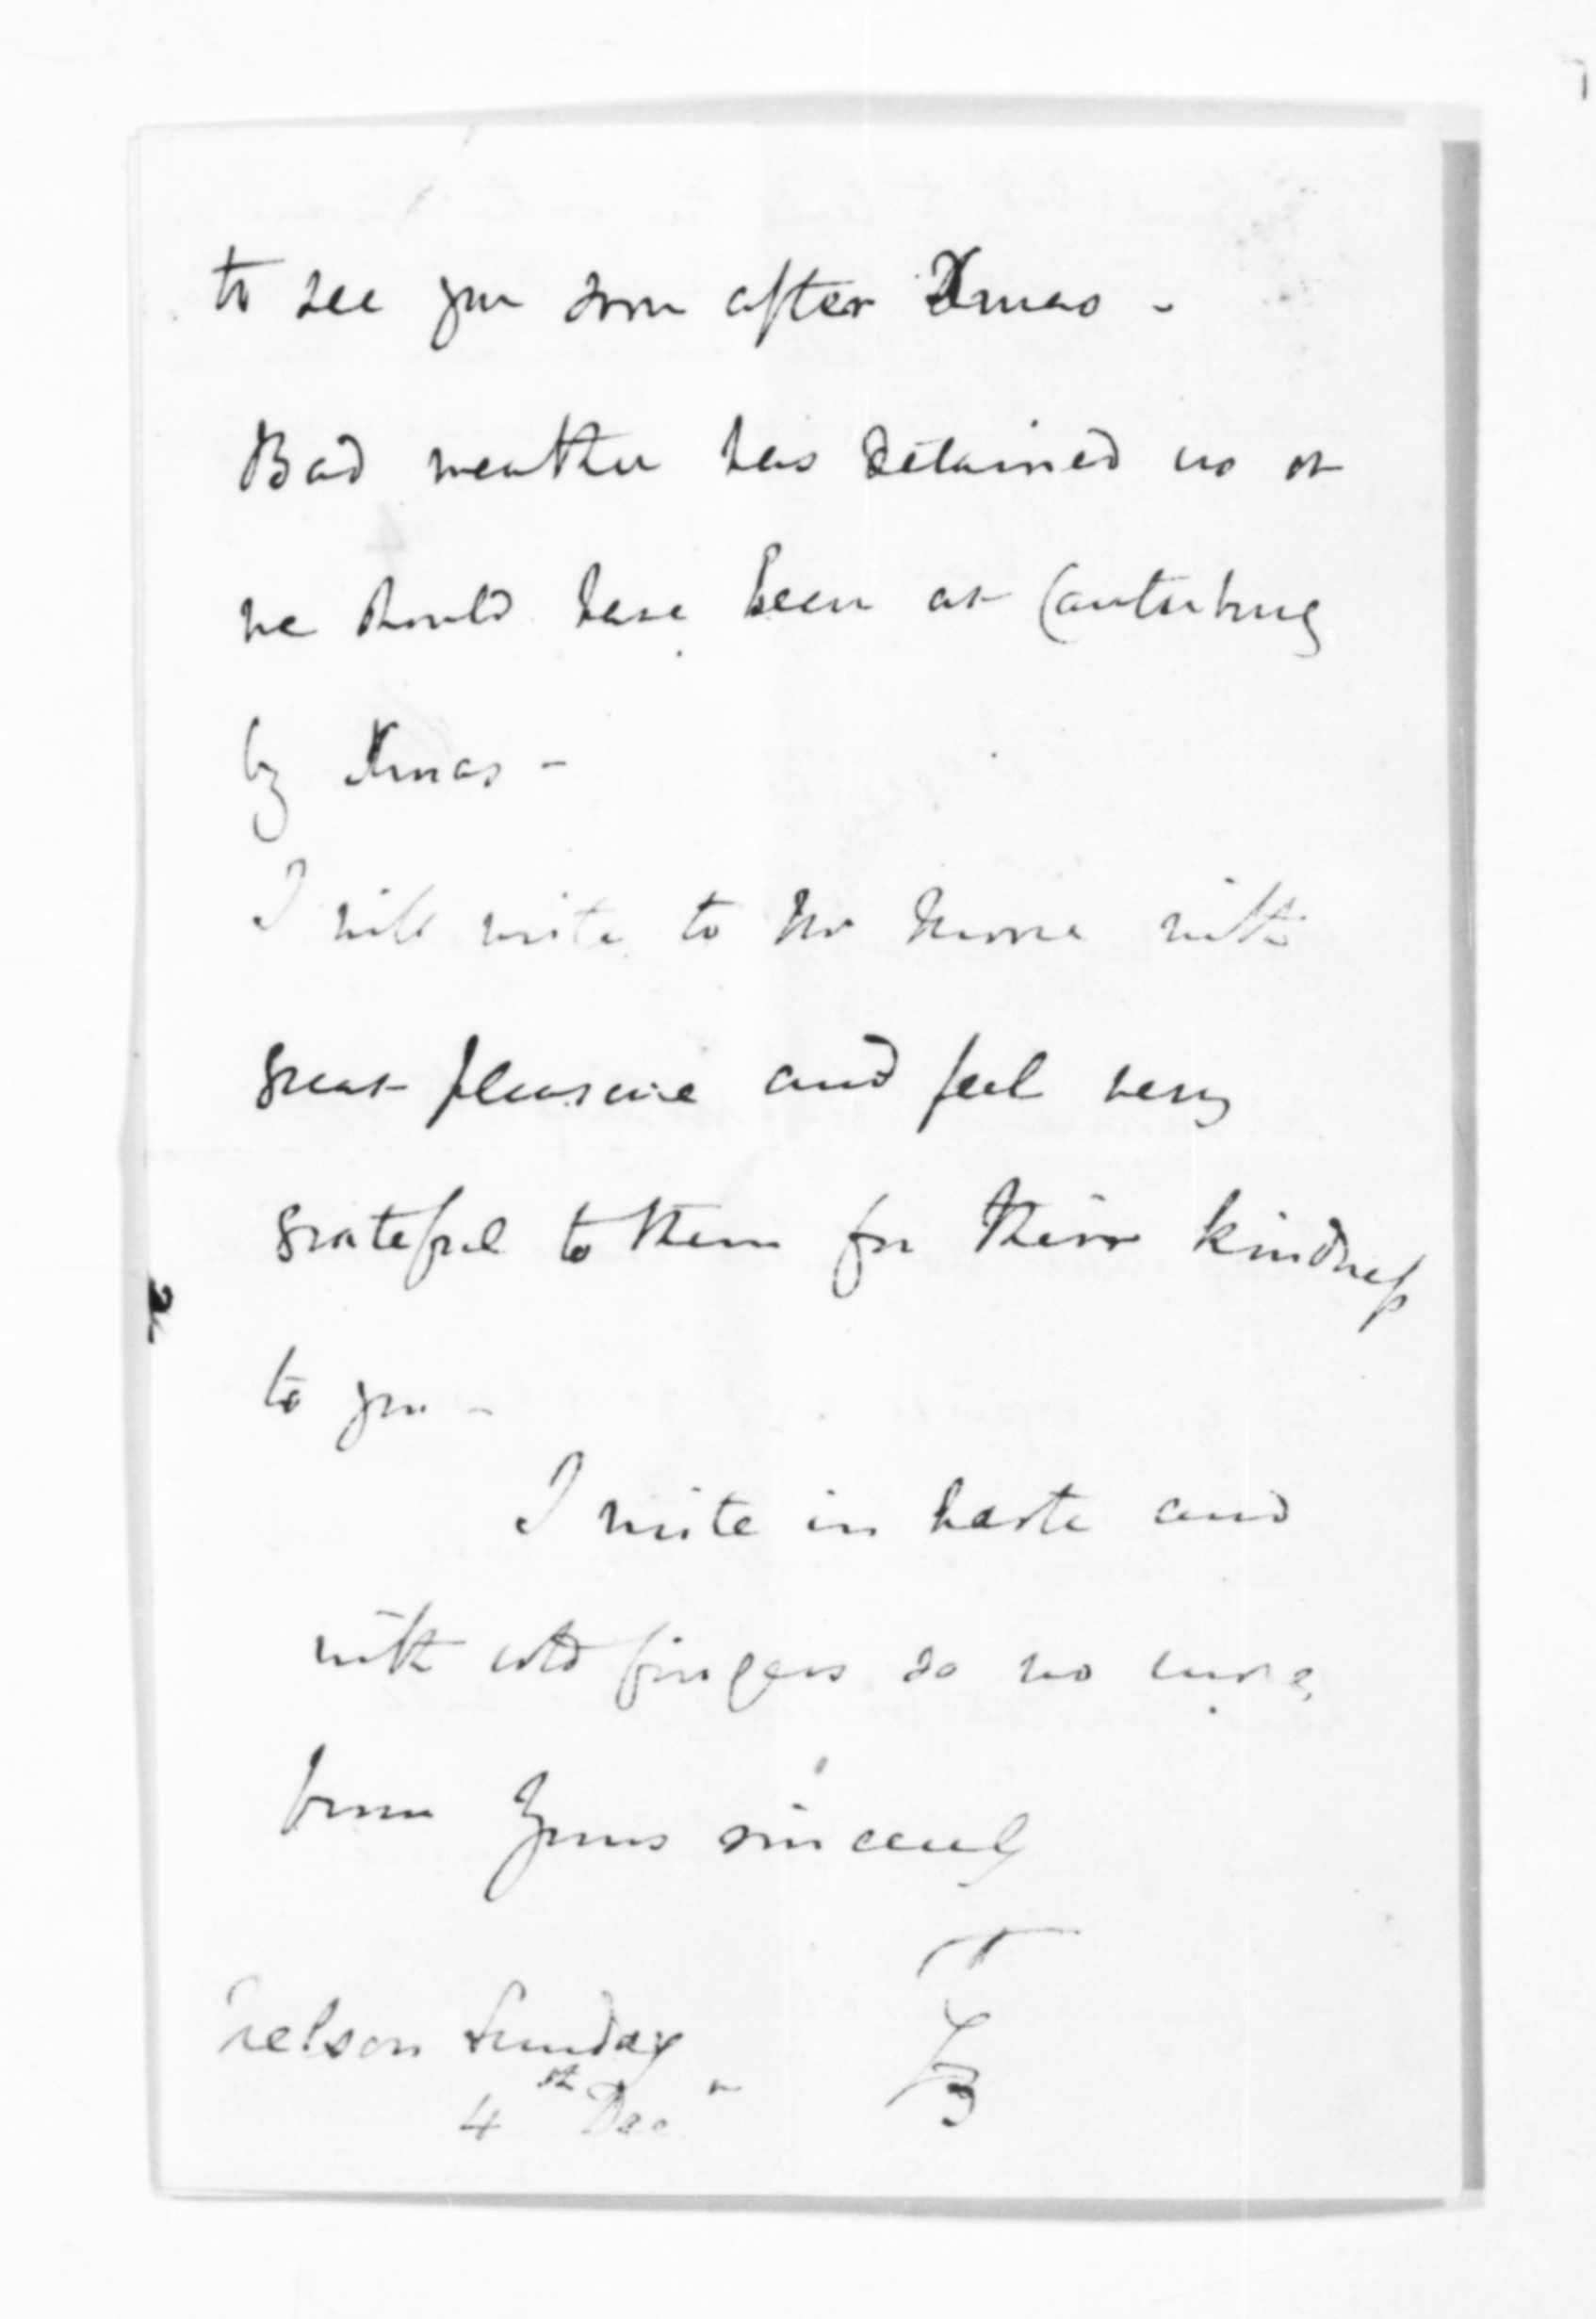 to see you soon after Xmas -
Bad weather has detained us or
we should have been at Canterbury
by Xmas -
I will write to Mr with
great pleasure and feel very
grateful to them for their kindness
to you -
I write in haste and
with cold fingers so no more
from Yours sincerely
Nelson Sunday
4th Decr